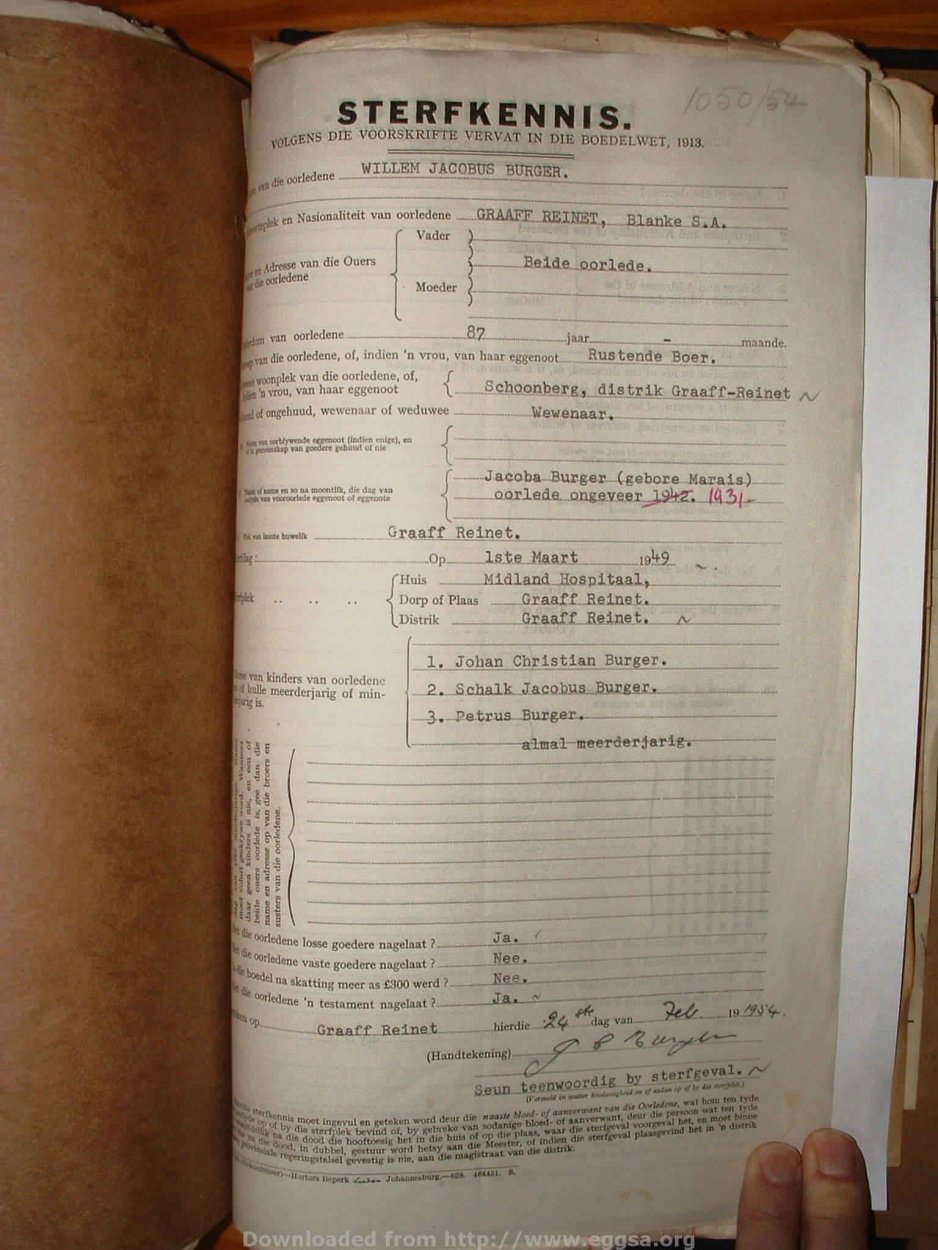 1050/54
STERFKENNIS.
VOLGENS DIE VOORSKRIFTE VERVAT IN DIE BOEDELWET, 1913.
van die oorledene WILLEM JACOBUS BURGER.
en Nasionaliteit van oorledene GRAAFF REINET, Blanke S.A.
Vader
en Adresse van die Ouers Beide oorlede.
die oorledene
Moeder
van oorledene 87 jaar - maande.
van die oorledene, of, indien 'n vrou, van haar eggenoot Rustende Boer.
woonplek van die oorledene, of,
'n vrou, van haar eggenoot Schoonberg, distrik Graaff-Reinet
of ongehuud, wewenaar of weduwee Wewenaar.
van oorblywende eggenoot (indien enige), en
van goedere gehuud of nie
Naam of name en so na moontlik, die dag van Jacoba Burger (gebore Marais)
van vooroorlede eggenoot of eggenote oorlede ongeveer 1942. 1931.
van laaste huwelik Graaff Reinet.
Op 1ste Maart 1949
Huis Midland Hospitaal,
Dorp of Plaas Graaff Reinet.
Distrik Graaff Reinet.
1. Johan Christian Burger.
van kinders van oorledene
of hulle meerderjarig of min- 2. Schalk Jacobus Burger.
is.
3. Petrus Burger.
almal meerderjarig.
daar geen kinders is nie, en een of
beide ouers oorlede is, gee dan die
name en adresse op van die broers en
susters van die oorledene.
die oorledene losse goedere nagelaat? Ja.
die oorledene vaste goedere nagelaat? Nee.
die boedel na skatting meer as £300 werd? Nee.
die oorledene 'n testament nagelaat? Ja.
op Graaff Reinet hierdie 24ste dag van Feb. 19 1954.
(Handtekening)
Seun teenwoordig by sterfgeval.
sterfkennis moet ingevul en geteken word deur die naaste bloed- of aanverwant van die Oorledene, wat hom ten tyde
op of by die sterfplek bevind of, by gebreke van sodanige bloed- of aanverwant, deur die persoon wat ten tyde
na die dood die hooftoesig het in die huis of op die plaas, waar die sterfgeval voorgeval het, en moet binne
die dood, in dubbel, gestuur word hetsy aan die Meester, of indien die sterfgeval plaasgevind het in 'n distrik
regeringstelsel gevestig is nie, aan die magistraat van die distrik.
Hortors Beperk Johannesburg.—628. 464451. S.
Downloaded from http://www.eggsa.org